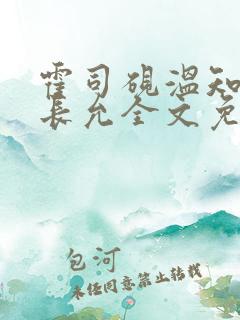 霍司砚温知
长允全文免
包河
未经同意禁止转载